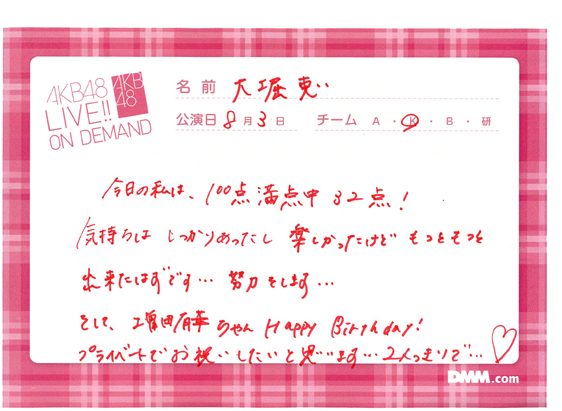 AKB48
LIVE!!
ON DEMAND
AKB
48
名前 大堀恵
公演日 8月3日 チーム A・K・B・研
今日の私は、100点満点中32点!
気持ちは しっかりあったし 楽しかったけど もっともっと
出来たはずです… 努力をします…
そして、増田有華ちゃん Happy Birthday!
プライベートでお祝いしたいと思います…2人っきりで…♡
DMM.com